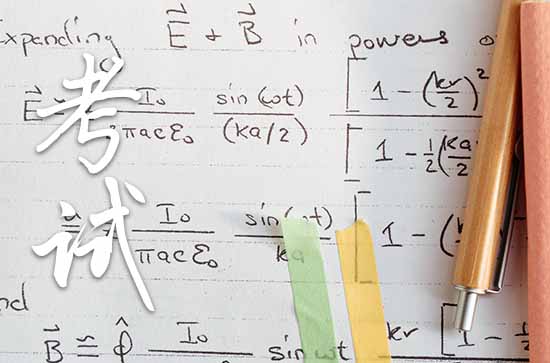 Expanding E⃗ & B⃗ in powers o
考试
E⃗ I₀ / πacε₀ sin(ωt) / (ka/2) [1 - (kr/2)²
[1 - ½(ka/2
I₀ / πacε₀ sin(ωt) / ka [1 - (kr
nd
B⃗ ≅ φ̂ I₀ sin ωt kr [1 - 1